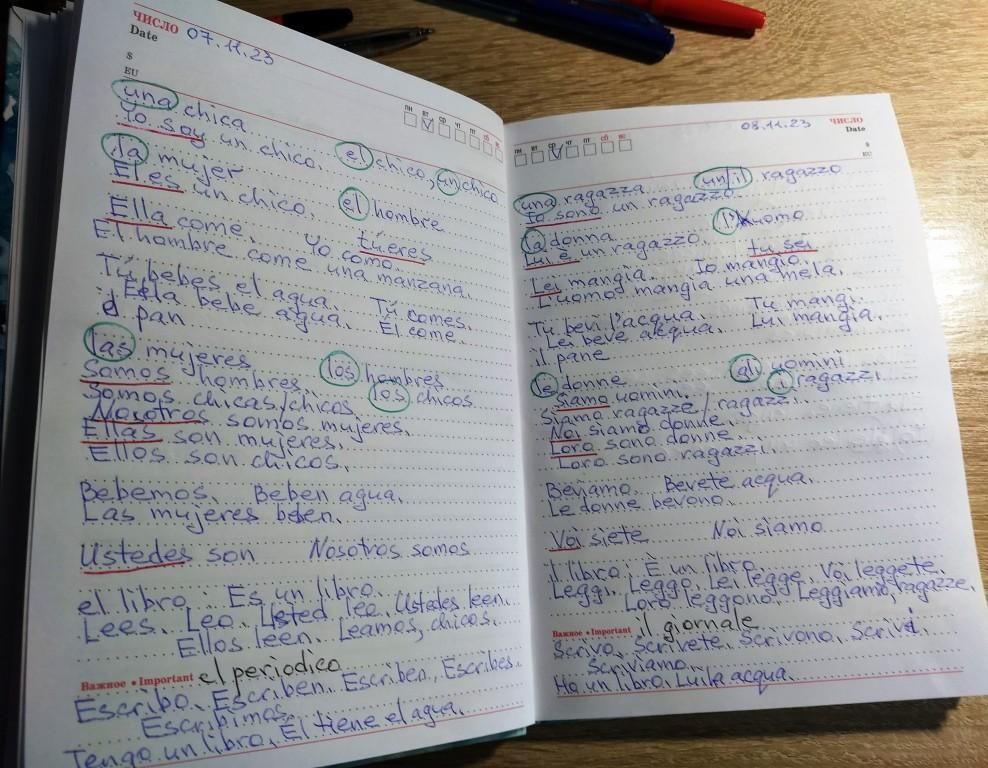 ЧИСЛО 07.11.23
Date
$
EU
пн вт ср чт пт сб вс
una chica
Yo soy un chico. el chico, un chico
la mujer
Él es un chico. el hombre
Ella come. Yo como. tú eres
El hombre come una manzana.
Tú bebes el agua. Tú comes.
Ella bebe agua. Él come.
el pan
las mujeres
Somos hombres. los hombres
Somos chicas/chicos. los chicos
Nosotros somos mujeres.
Ellas son mujeres.
Ellos son chicos.
Bebemos. Beben agua.
Las mujeres beben.
Ustedes son Nosotros somos
el libro; Es un libro.
Lees. Leo. Usted lee. Ustedes leen.
Ellos leen. Leamos, chicos.
Важное • Important el periodico
Escribo. Escriben. Escriben. Escribes.
Escribimos.
Tengo un libro. Él tiene el agua.
08.11.23 ЧИСЛО
Date
$
EU
пн вт ср чт пт сб вс
una ragazza un/il ragazzo
Io sono un ragazzo.
la donna l'uomo
Lui è un ragazzo. tu sei
Lei mangia. Io mangio.
L'uomo mangia una mela.
Tu bevi l'acqua. Tu mangi.
Lei beve acqua. Lui mangia.
il pane
le donne gli uomini
Siamo uomini. i ragazzi
Siamo ragazze/ragazzi.
Noi siamo donne.
Loro sono donne.
Loro sono ragazzi.
Beviamo. Bevete acqua.
Le donne bevono.
Voi siete Noi siamo
il libro; È un libro.
Leggi. Leggo. Lei legge. Voi leggete.
Loro leggono. Leggiamo, ragazze.
Важное • Important il giornale
Scrivo. Scrivete. Scrivono. Scrivi.
Scriviamo.
Ho un libro. Lui ha acqua.